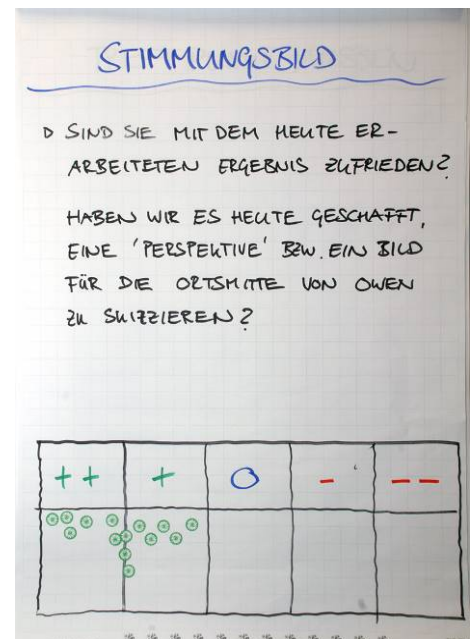 STIMMUNGSBILD
▷ SIND SIE MIT DEM HEUTE ER-
ARBEITETEN ERGEBNIS ZUFRIEDEN?
HABEN WIR ES HEUTE GESCHAFFT,
EINE 'PERSPEKTIVE' BZW. EIN BILD
FÜR DIE ORTSMITTE VON OWEN
ZU SKIZZIEREN?
++ + O - --